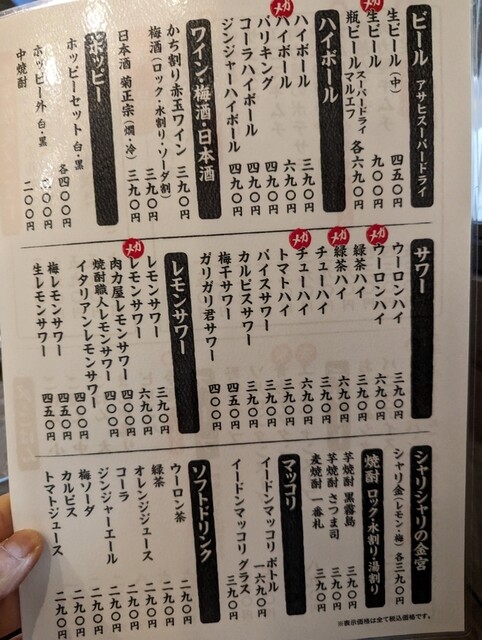 ビール アサヒスーパードライ
生ビール(中) 四五〇円
メガ
生ビール 九〇〇円
瓶ビール スーパードライ マルエフ 各六九〇円
ハイボール
ハイボール 三九〇円
メガ
ハイボール 六九〇円
バリキング 四九〇円
コーラハイボール 四九〇円
ジンジャーハイボール 四九〇円
ワイン・梅酒・日本酒
かち割り赤玉ワイン 三九〇円
梅酒(ロック・水割り・ソーダ割) 三九〇円
日本酒 菊正宗(燗・冷) 三九〇円
ホッピー
ホッピーセット 白・黒 各四〇〇円
ホッピー外 白・黒 〇〇円
中焼酎 二〇〇円
サワー
ウーロンハイ 三九〇円
メガ
ウーロンハイ 六九〇円
緑茶ハイ 三九〇円
メガ
緑茶ハイ 六九〇円
チューハイ 三九〇円
メガ
チューハイ 六九〇円
トマトハイ 三九〇円
バイスサワー 三九〇円
カルピスサワー 三九〇円
梅干サワー 四五〇円
ガリガリ君サワー 四〇〇円
レモンサワー
レモンサワー 三九〇円
メガ
レモンサワー 六九〇円
肉力屋レモンサワー 四〇〇円
焼酎職人レモンサワー 四〇〇円
イタリアンレモンサワー 四〇〇円
梅レモンサワー 四五〇円
生レモンサワー 四五〇円
シャリシャリの金宮
シャリ金(レモン・梅) 各三九〇円
焼酎 ロック・水割り・湯割り
芋焼酎 黒霧島 三九〇円
芋焼酎 さつま司 三九〇円
麦焼酎 一番札 三九〇円
マッコリ
イードンマッコリ ボトル 一六九〇円
イードンマッコリ グラス 三九〇円
ソフトドリンク
ウーロン茶 二九〇円
緑茶 二九〇円
オレンジジュース 二九〇円
コーラ 二九〇円
ジンジャーエール 二九〇円
梅ソーダ 二九〇円
カルピス 二九〇円
トマトジュース 二九〇円
※表示価格は全て税込価格です。